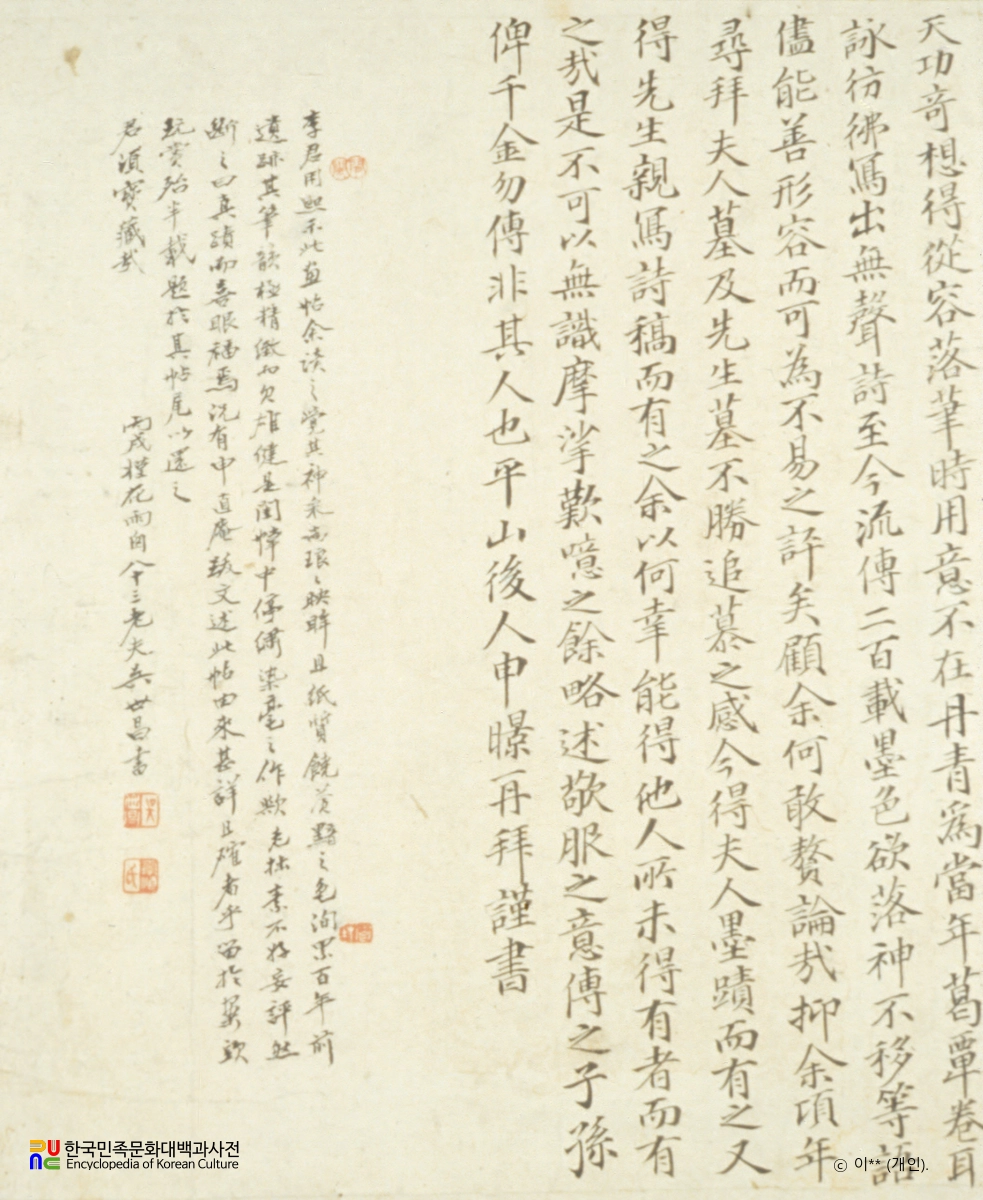 天功奇想得從容落筆時用意不在丹青爲當年葛覃卷耳
詠彷彿寫出無聲詩至今流傳二百載墨色欲落神不移等語
儘能善形容而可為不易之評矣顧余何敢贅論哉抑余頃年
尋拜夫人墓及先生墓不勝追慕之感今得夫人墨蹟而有之又
得先生親寫詩稿而有之余以何幸能得他人所未得有者而有
之哉是不可以無識摩挲歎噫之餘略述敬服之意傳之子孫
俾千金勿傳非其人也平山後人申曝再拜謹書
李君用熙示此畫帖余讀之覺其神采映眸且紙質饒黃黯之色洵累百年前
遺跡其筆韻極精緻而欠雄健是閨幃中係繡染毫之作歟老抹素不好妄評然
斷之曰真蹟而喜眼福焉況有申直庵跋文述此帖由來甚詳且確者乎留於案頭
玩賞殆半載題於其帖尾以還之
君須寶藏哉
丙戌槿花雨月八十三老夫吳世昌書
한국민족문화대백과사전
Encyclopedia of Korean Culture
ⓒ 이** (개인).